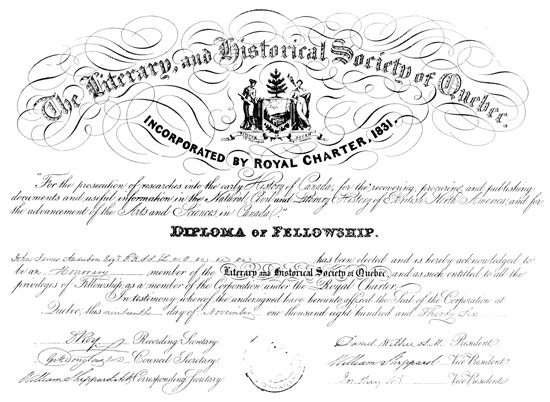 The Literary, and Historical Society of Quebec.
INCORPORATED BY ROYAL CHARTER, 1831.
"For the prosecution of researches into the early History of Canada, for the recovering, procuring, and publishing
documents and useful information in the Natural, Civil and Literary History of British North America; and for
the advancement of the Arts and Sciences in Canada."
DIPLOMA OF FELLOWSHIP.
John James has been elected and is hereby acknowledged to
be an Honorary member of the Literary and Historical Society of Quebec, and as such, entitled to all the
privileges of Fellowship as a member of the Corporation under the Royal Charter.
In testimony whereof the undersigned have hereunto affixed the Seal of the Corporation at
Quebec, this day of November one thousand eight hundred and Thirty Six
Recording Secretary Daniel President
Council Secretary. William Sheppard Vice President
William Sheppard Corresponding Secretary Vice President